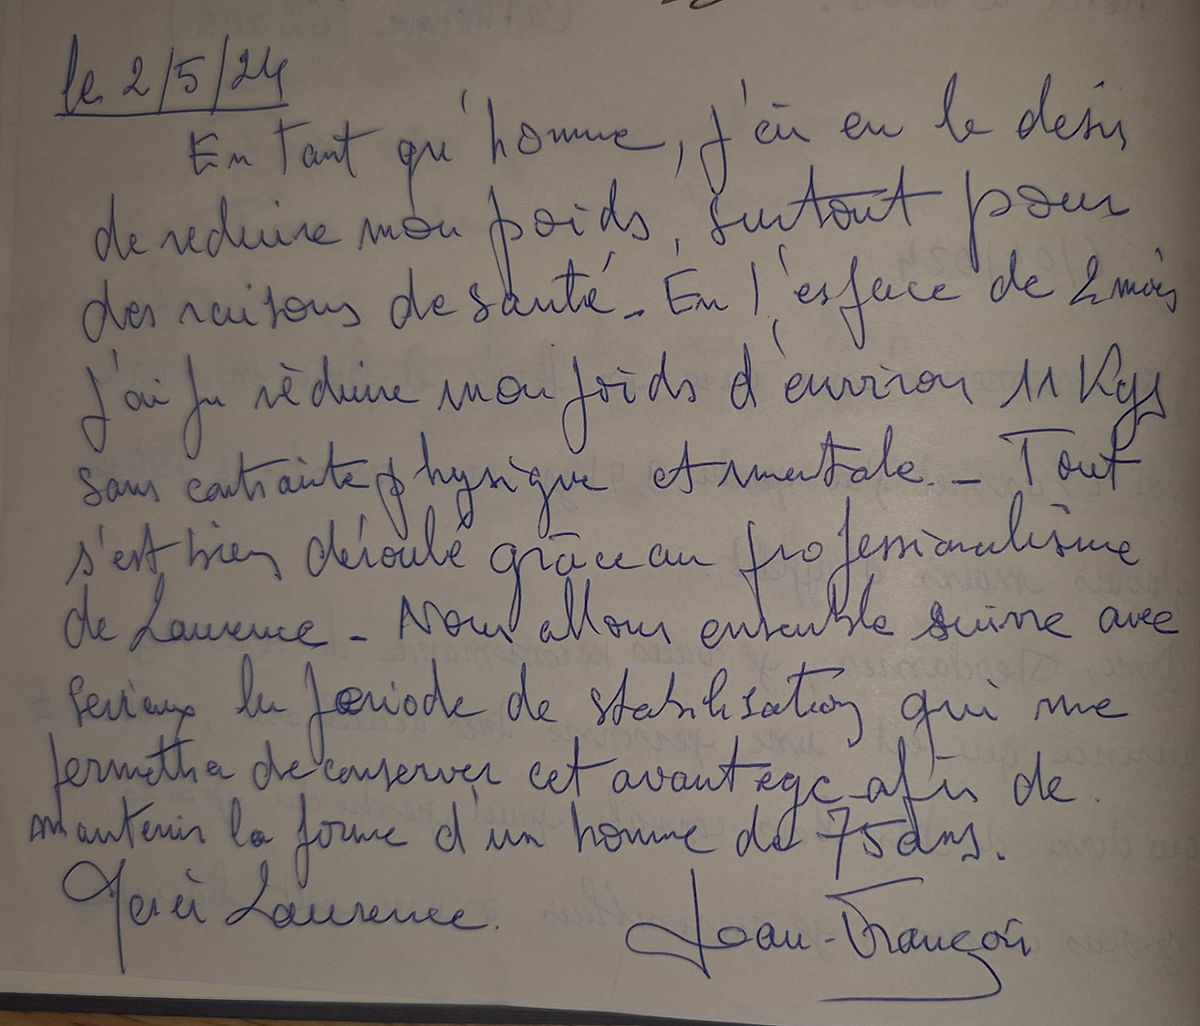 le 2/5/24
En Tant qu'homme, j'ai eu le désir
de reduire mon poids, surtout pour
des raisons de santé - En l'espace de 2 mois
j'ai pu réduire mon poids d'environ 11 Kgs
sans contrainte physique et mentale. - Tout
s'est bien déroulé grâce au professionalisme
de Laurence - Nous allons ensemble suivre avec
serieux la periode de stabilisation qui me
permettra de conserver cet avantage afin de
maintenir la forme d'un homme de 75 ans.
Merci Laurence. Jean-François